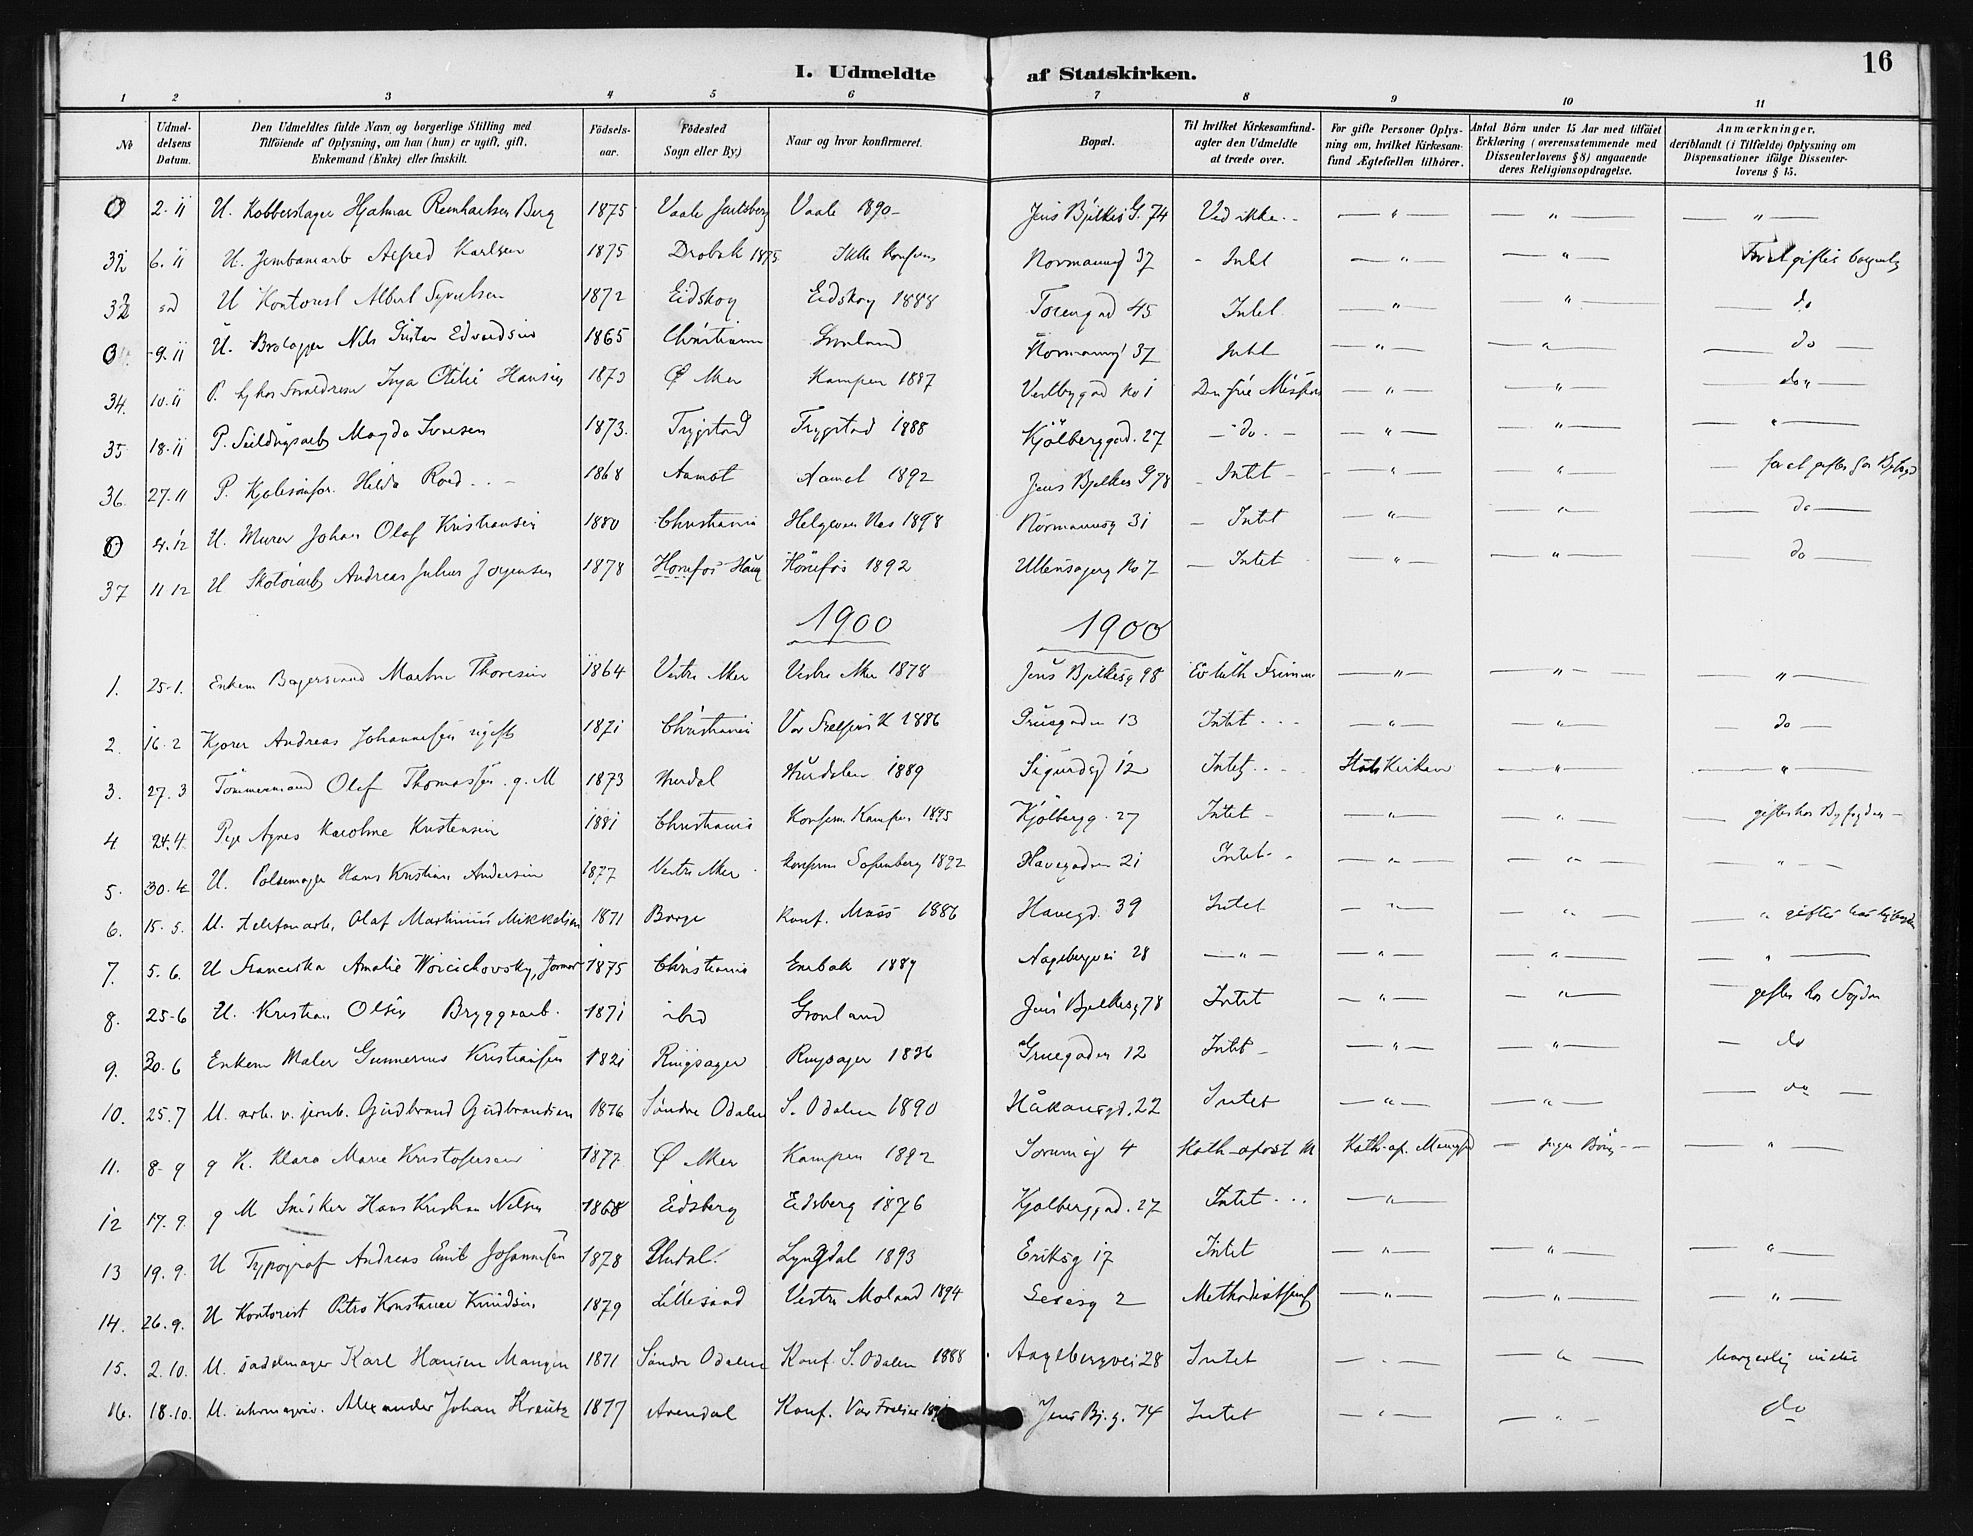 16
I. Udmeldte af Statskirken.
1 2 3 4 5 6 7 8 9 10 11
No
Udmeldelsens Datum.
Den Udmeldtes fulde Navn og borgerlige Stilling med
Tilföiende af Oplysning, om han (hun) er ugift, gift,
Enkemand (Enke) eller fraskilt.
Födselsaar.
Födested
Sogn eller By.)
Naar og hvor konfirmeret.
Bopæl.
Til hvilket Kirkesamfund
agter den Udmeldte
at træde over.
For gifte Personer Oplysning
om, hvilket Kirkesamfund
Ægtefællen tilhörer.
Antal Börn under 15 Aar med tilföiet
Erklæring (overensstemmende med
Dissenterlovens § 8) angaaende
deres Religionsopdragelse.
Anmærkninger,
deriblandt (i Tilfælde) Oplysning om
Dispensationer ifölge Dissenterlovens
§ 15.
0 2.11 U. Kobberslager Hjalmar Reinhartsen Berg 1875 Vaale Jarlsberg Vaale 1890 Jens Bjelkes G. 74 Ved ikke — " — — " — — " —
6.11 U. Jernbanearb Alfred Karlsen 1875 Drobak 1875 Ikke Konfirm Normannsg 37 Intet — " — — " —
sd U Kontorist Albert Syvertsen 1872 Eidskog Eidskog 1888 45 Intet — " — — " — do
9.11 U. Brolægger Nils Gustav Edvardsen 1865 Christiania Gronland Normannsg 37 Intet — " — — " — do
34. 10.11 P. Inga Otilie Hansen 1873 Ø Aker Kampen 1887 Vestbygad No 1 Den frie — " — — " — do
35 18.11 P. Magda Ivarsen 1873. Trygstad Trygstad 1888 Kjölberggad. 27 do. — " — — " — — " —
36 27.11 P. Hilda Roed 1868 Aamot Aamot 1892 Jens Bjelkes G 78 Intet — " — — " —
0 4.12 U. Murer Johan Olaf Kristiansen 1880 Christiania Helgesen Næs 1898 Normannsg 31 Intet — " — — " — do
37 11 12 U Skotoiarb Andreas Julius Jorgensen 1878 Honefos Hönefos 1892 Ullensagerg No 7 Intet — " — — " — do
1900 1900
1. 25.1. Enkem Martin Thoresen 1864 Vestre Aker Vestre Aker 1878 Jens Bjelkesg 98 Ev luth — " — — " — — " —
2. 16.2 Kjorer Andreas Johannesen ugift 1871 Christiania Vor Frelsers K 1886 13 Intet — " — — " — do
3. 27.3 Tömmermand Olaf Thomassen. g. M 1873 Hurdal Hurdalen 1889 Sigurdsg 12 Intet Stats Kirken — " — — " —
4 24.4. Pige Agnes Karoline Kristensen 1881 Christiania Konfirm Kampen 1895 Kjölbergg. 27 Intet — " — — " — giftes hos Byfogden
5. 30.4 U. Polsemager Hans Kristian Andersen 1877 Vestre Aker Konfirm Sofienberg 1892 Havegaden 21 Intet — " — — " — — " —
6. 15.5. U. telefonarb. Olaf Martinius Mikkelsen 1871 Borge Konf. Moss 1886 Havegd. 39 Intet — " — — " — " giftes hos byfogden
7. 5.6. U Franciska Amalie Woicichovsky, 1875 Christiania Enebak 1889 Aagebergvei 28 — " — — " — — " — — " —
8. 25-6 U. Kristian Olsen Bryggearb. 1871 ibid Gronland Jens Bjelkesg 78 Intet — " — — " — giftes hos Fogden
9. 30.6 Enkem Maler Gunnerius Kristiansen 1821 Ringsager Ringsager 1836 Gruegaden 12 Intet — " — — " — do
10. 25.7 U. arb. v. jernb. Gudbrand Gudbrandsen 1876 Söndre Odalen S. Odalen 1890 Håkonsgd. 22 Intet — " — — " — do
11. 8-9 g K. Klara Marie Kristofersen 1877 Ø Aker Kampen 1892 Sorumsg 4 Kath-apost M Kath-ap. ingen Börn — " —
12 17.9. g M Snisker Hans Kristian Nilsen 1868 Eidsberg Eidsberg 1876 Kjolberggad. 27 Intet — " —
13 19.9. U Typograf Andreas Emil Johannesen 1878 Lyngdal 1893 Eriksg 17 Intet — " — — " — — " —
14. 26.9. U Kontorist Petra Konstance Knudsen 1879 Lillesand Vestre Moland 1894 2 Methodistsamf — " — — " — — " —
15. 2.10. U. sadelmager Karl Hansen Mangen 1871 Söndre Odalen Konf. S. Odalen 1888 Aagebergvei 28 Intet — " — — " — borgerlig vielse
16. 18.10. U. Alexander Johan Kreutz 1877 Arendal Konf. Vor Frelser Jens Bj. g. 74 Intet — " — — " — do